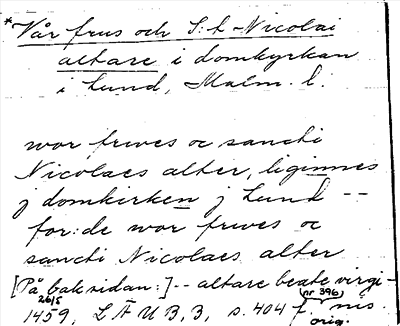 *Vår frus och S:t Nicolai
altare i domkyrkan
i Lund, Malm. l.
wor frwes oc sancti
Nicolaes alter, liginnes
j domkirken j Lund --
for:de wor frwes oc
sancti Nicolaes alter
[På baksidan:] -- altare beate virgi-
26/5 (nr 396) nis
1459, LÄUB, 3, s. 404 f orig.